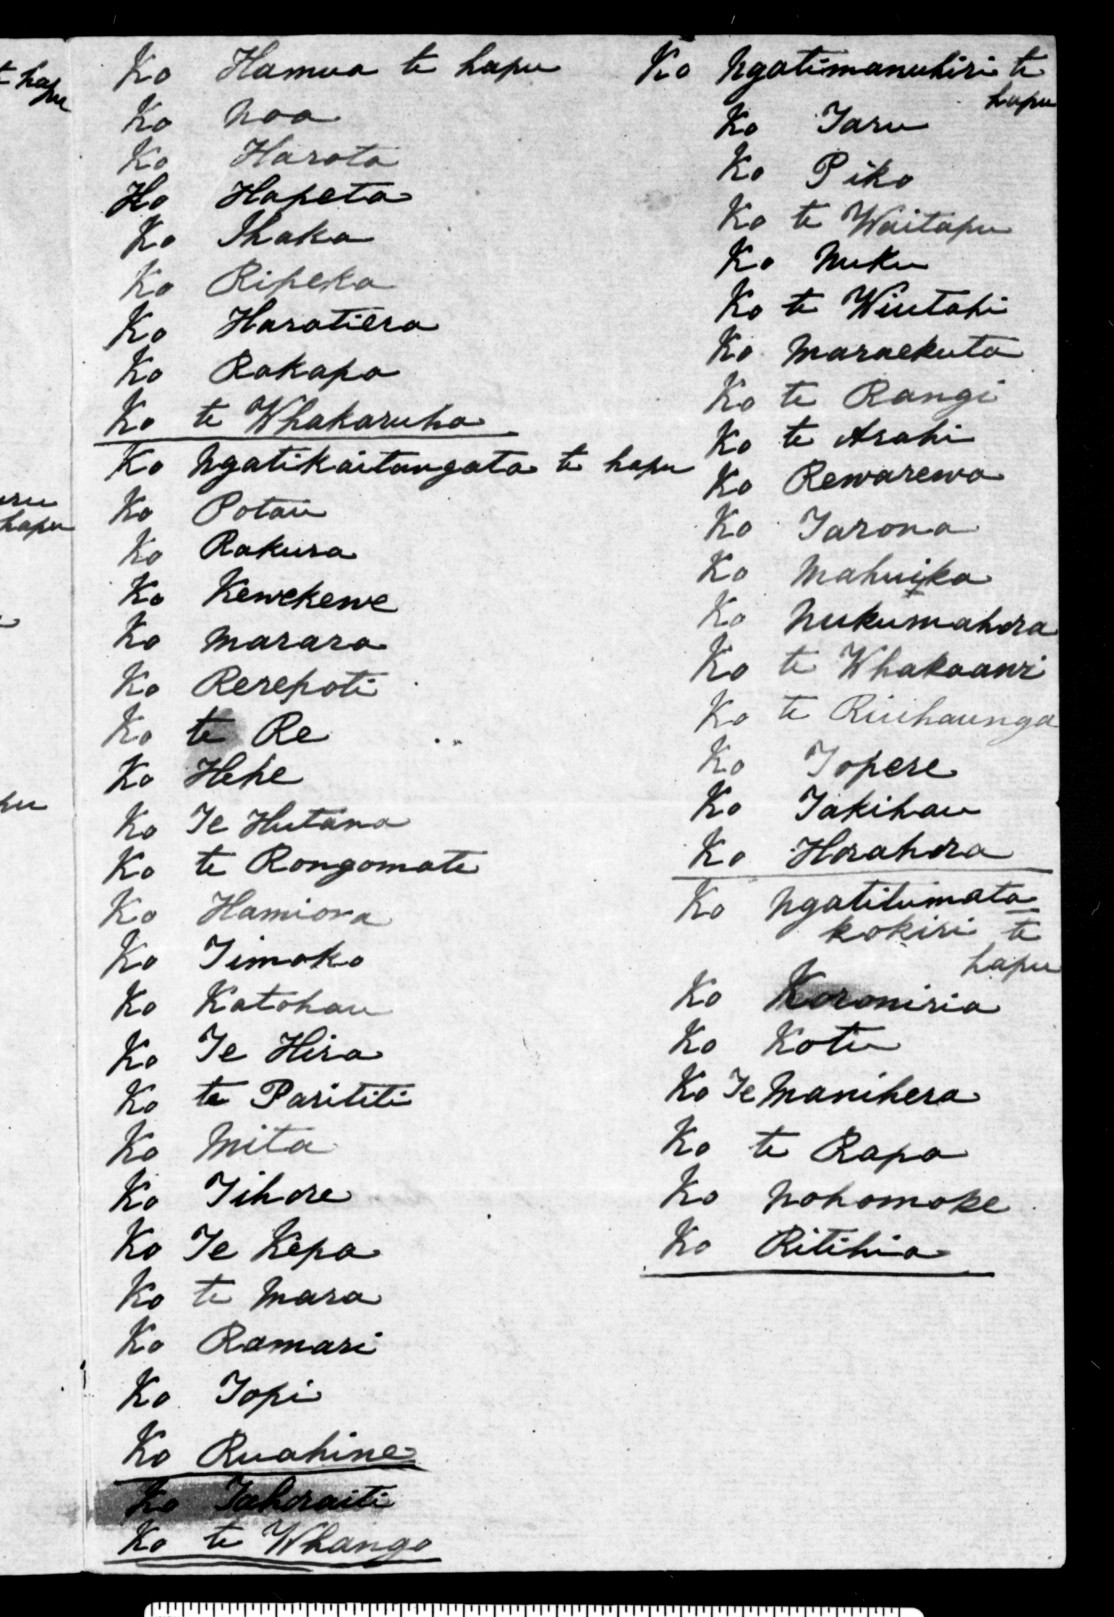 t hapu
Ko Hamua te hapu
Ko Noa
Ko Harota
Ko Hapeta
Ko Ihaka
Ko Ripeka
Ko Haratiera
Ko Rakapa
Ko te Whakaruha
Ko Ngatikaitangata te hapu
Ko Potau
Ko Rakura
Ko Kewekewe
Ko Marara
Ko Rerepoti
Ko te Re
Ko Hehe
Ko Te Hutana
Ko te Rongomate
Ko Hamiora
Ko Timoko
Ko Katohau
Ko Te Hira
Ko te Parititi
Ko Mita
Ko Tihore
Ko Te Kepa
Ko te Mara
Ko Ramari
Ko Topi
Ko Ruahine
Ko Tahoraiti
Ko te Whango
Ko Ngatimanuhiri te
hapu
Ko Taru
Ko Piko
Ko te Waitapu
Ko Nuku
Ko te Wiutahi
Ko Maraekuta
Ko te Rangi
Ko te Arahi
Ko Rewarewa
Ko Tarona
Ko Mahuika
Ko Nukumahora
Ko te Whakaawi
Ko te Riuhaunga
Ko Topere
Ko Takihau
Ko Horahora
Ko Ngatitumata=
kokiri te
hapu
Ko Koroniria
Ko Kotu
Ko Te Manihera
Ko te Rapa
Ko Nohomoke
Ko Ritihia